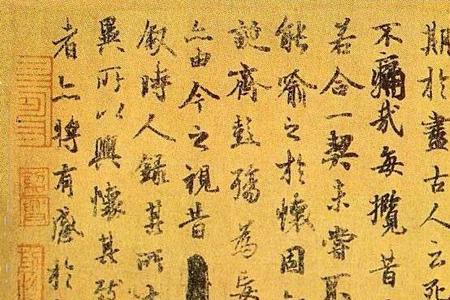 期於盡古人云死
不痛哉每攬昔
若合一契未嘗不
能喻之於懷固
誕齊彭殤為妄
亦由今之視昔
叙時人錄其所
異所以興懷其致
者亦將有感於